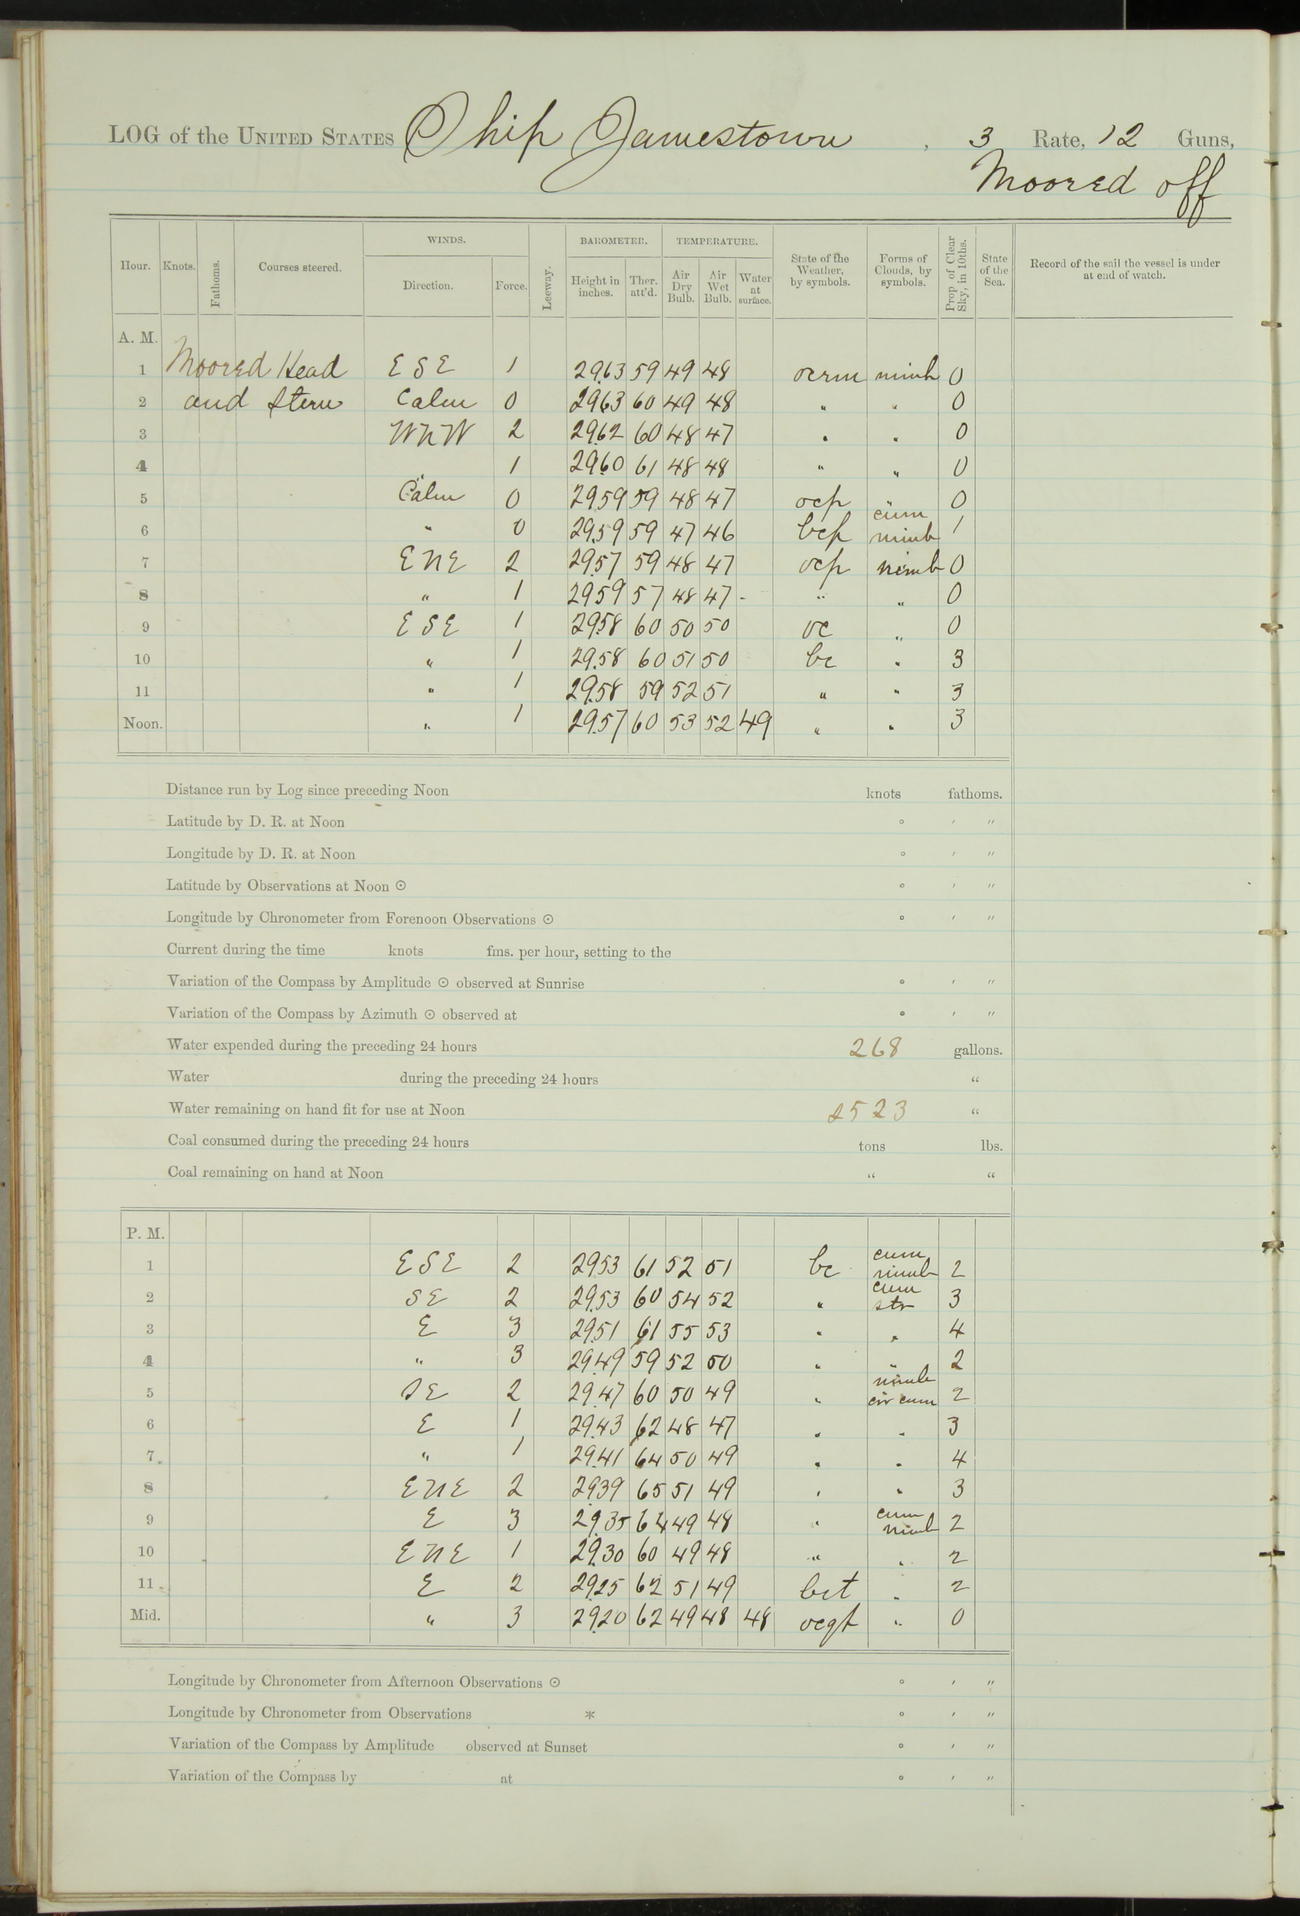 LOG of the UNITED STATES Ship Jamestown, 3 Rate, 12 Guns,
Moored off
Hour. Knots. Fathoms. Courses steered. WINDS. Direction. Force. Leeway. BAROMETER. Height in inches. Ther. att'd. TEMPERATURE. Air Dry Bulb. Air Wet Bulb. Water at surface. State of the Weather, by symbols. Forms of Clouds, by symbols. Prop. of Clear Sky, in 10ths. State of the Sea. Record of the sail the vessel is under at end of watch.
A. M.
1 Moored Head ESE 1 29.63 59 49 48 ocrm nimb 0
2 and Stern Calm 0 29.63 60 49 48 " " 0
3 WNW 2 29.62 60 48 47 " " 0
4 " 1 29.60 61 48 48 " " 0
5 Calm 0 29.59 59 48 47 ocp " 0
6 " 0 29.59 59 47 46 bcp cum nimb 1
7 ENE 2 29.57 59 48 47 ocp nimb 0
8 " 1 29.59 57 48 47 - " " 0
9 ESE 1 29.58 60 50 50 oc " 0
10 " 1 29.58 60 51 50 bc " 3
11 " 1 29.58 59 52 51 " " 3
Noon. " 1 29.57 60 53 52 49 " " 3
Distance run by Log since preceding Noon knots fathoms.
Latitude by D. R. at Noon ° ′ ″
Longitude by D. R. at Noon ° ′ ″
Latitude by Observations at Noon ☉ ° ′ ″
Longitude by Chronometer from Forenoon Observations ☉ ° ′ ″
Current during the time knots fms. per hour, setting to the
Variation of the Compass by Amplitude ☉ observed at Sunrise ° ′ ″
Variation of the Compass by Azimuth ☉ observed at ° ′ ″
Water expended during the preceding 24 hours 268 gallons.
Water during the preceding 24 hours "
Water remaining on hand fit for use at Noon 2523 "
Coal consumed during the preceding 24 hours tons lbs.
Coal remaining on hand at Noon " "
P. M.
1 ESE 2 29.53 61 52 51 bc cum nimb 2
2 SE 2 29.53 60 54 52 " cum str 3
3 E 3 29.51 61 55 53 " " 4
4 " 3 29.49 59 52 50 " " 2
5 SE 2 29.47 60 50 49 " nimb cir cum 2
6 E 1 29.43 62 48 47 " " 3
7 " 1 29.41 64 50 49 " " 4
8 ENE 2 29.39 65 51 49 " " 3
9 E 3 29.35 64 49 48 " cum nimb 2
10 ENE 1 29.30 60 49 48 " " 2
11 E 2 29.25 62 51 49 bct " 2
Mid. " 3 29.20 62 49 48 48 ocqt " 0
Longitude by Chronometer from Afternoon Observations ☉ ° ′ ″
Longitude by Chronometer from Observations * ° ′ ″
Variation of the Compass by Amplitude observed at Sunset ° ′ ″
Variation of the Compass by at ° ′ ″